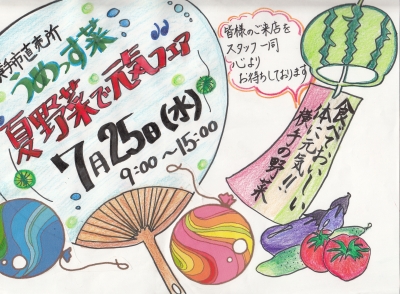 市直売所
うめっす菜
夏野菜で元気フェア
7月25日(水)
9:00~15:00
皆様のご来店を
スタッフ一同
心より
お待ちしております
食べておいしい
体に元気!!
横手の野菜